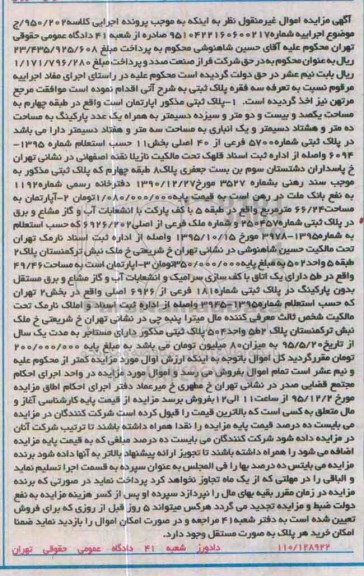 آگهی مزایده اموال غیرمنقول نظر به اینکه به موجب پرونده اجرایی کلاسه ۹۵۰۲۰۲/ج
موضوع اجراییه شماره ۹۵۱۰۴۲۲۱۶۰۶۰۰۲۱۷ صادره از شعبه ۴۱ دادگاه عمومی حقوقی
تهران محکوم علیه آقای حسین شاهنوشی محکوم به پرداخت مبلغ ۲۳/۴۳۵/۹۲۵/۶۰۸
ریال به عنوان محکوم به در حق شرکت فراز صنعت صدد و پرداخت مبلغ ۱/۱۷۱/۷۹۶/۲۸۰
ریال بابت نیم عشر در حق دولت گردیده است محکوم علیه در راستای اجرای مفاد اجراییه
مرقوم نسبت به تعرفه سه فقره پلاک ثبتی به شرح آتی اقدام نموده است موافقت مرجع
مرتهن نیز اخذ گردیده است. ۱-پلاک ثبتی مذکور آپارتمان است واقع در طبقه چهارم به
مساحت یکصد و بیست و دو متر و سیزده دسیمتر به همراه یک عدد پارکینگ به مساحت
ده متر و هشتاد دسیمتر و یک انباری به مساحت سه متر و هفتاد دسیمتر دارا می باشد
در پلاک ثبتی شماره ۵۷۰۰ فرعی از ۴۰ اصلی بخش ۱۱ حسب استعلام شماره ۱۳۹۵-
۶۰۹۴ واصله از اداره ثبت اسناد قلهک تحت مالکیت نازیلا نقنه اصفهانی در نشانی تهران
خ پاسداران دشتستان سوم بن بست جعفری پلاک ۸ طبقه چهارم که پلاک ثبتی مذکور به
موجب سند رهنی بشماره ۳۵۲۷ مورخ ۱۳۹۰/۱۲/۲۷ دفترخانه رسمی شماره ۱۱۹۲
به نفع بانک ملت در رهن است به قیمت پایه ۱/۰۸۰/۰۰۰/۰۰۰ تومان ۲-آپارتمان به
مساحت ۶۶/۲۴ مترمربع واقع در طبقه ۵ با کف پارکت با انشعابات آب و گاز مشاع و برق
در پلاک ثبتی شماره ۲۵۰۴۵۷ و شماره ملک فرعی از اصلی ۶۹۲۶/۲۰۲ که حسب استعلام
به شماره ۱۳۹۵-۳۹۷۸ مورخ ۱۳۹۵/۱۰/۱۵ واصله از اداره ثبت اسناد نارمک تهران
تحت مالکیت حسین شاهنوشی در نشانی تهران خ شریعتی خ ملک نبش ترکمنستان پلاک ۲
طبقه ۵ واحد ۵۰۲ به مبلغ پایه ۳۵۰/۰۰۰/۰۰۰ تومان ۳-آپارتمان است به مساحت ۴۹/۴۶
واقع در ط ۵ دارای یک اتاق با کف سازی سرامیک و انشعابات آب و گاز مشاع و برق مستقل
بدون پارکینگ در پلاک ثبتی شماره ۱۸۱ فرعی از ۶۹۲۶ اصلی واقع در بخش ۲ تهران
که حسب استعلام شماره ۱۳۹۵-۳۹۴۵ واصله از اداره ثبت اسناد و املاک نارمک تحت
مالکیت شخص ثالث معرفی کننده مال میترا پنبه چی در نشانی تهران خ شریعتی خ ملک
نبش ترکمنستان پلاک ۲ ط ۵ واحد ۵۰۴ پلاک ثبتی مذکور دارای مستاجر به مدت یک سال
از تاریخ ۹۵/۵/۲۰ به میزان ۸۰ میلیون تومان می باشد به مبلغ پایه ۲۰۰/۰۰۰/۰۰۰
تومان مقرر گردید کل اموال باتوجه به اینکه ارزش اموال مورد مزایده کمتر از محکوم علیه
و نیم عشر است تمام اموال بفروش می رسد و اموال مورد مزایده در واحد اجرای احکام
مجتمع قضایی صدر در نشانی تهران خ مطهری خ میرعماد دفتر اجرای احکام اطاق مزایده
مورخ ۹۵/۱۲/۲ از ساعت ۱۱ الی ۱۲ بفروش برسد مزایده از قیمت پایه کارشناسی آغاز و
مال متعلق به کسی است که بالاترین قیمت را قبول کرده است شرکت کنندگان در مزایده
می بایست ده درصد قیمت پایه مزایده را نقدا همراه داشته باشند تا ترتیب شرکت آنان
در مزایده داده شود شرکت کنندگان می بایست ده درصد مبلغی که به قیمت پایه مزایده
اضافه می شود را همراه داشته باشند تا تجویز ارائه پیشنهاد بالاتر به آنها داده شود برنده
مزایده می بایستی ده درصد بها را فی المجلس به عنوان سپرده به قسمت اجرا تسلیم نماید
و الباقی را در مهلتی که از یک ماه تجاوز نخواهد کرد پرداخت نماید در صورتی که برنده
مزایده در زمان مقرر بقیه بهای مال را نپردازد سپرده او پس از کسر هزینه مزایده به نفع
دولت ضبط و مزایده تجدید می گردد هرکس میتواند ۵ روز قبل از روزی که برای فروش
تعیین شده است به دفتر شعبه ۴۱ مراجعه و در صورت امکان اموال را بازدید نماید ضمنا
امکان خرید هر پلاک به صورت مستقل وجود دارد.
۱۱۰/۱۲۸۹۲۲ دادورز شعبه ۴۱ دادگاه عمومی حقوقی تهران